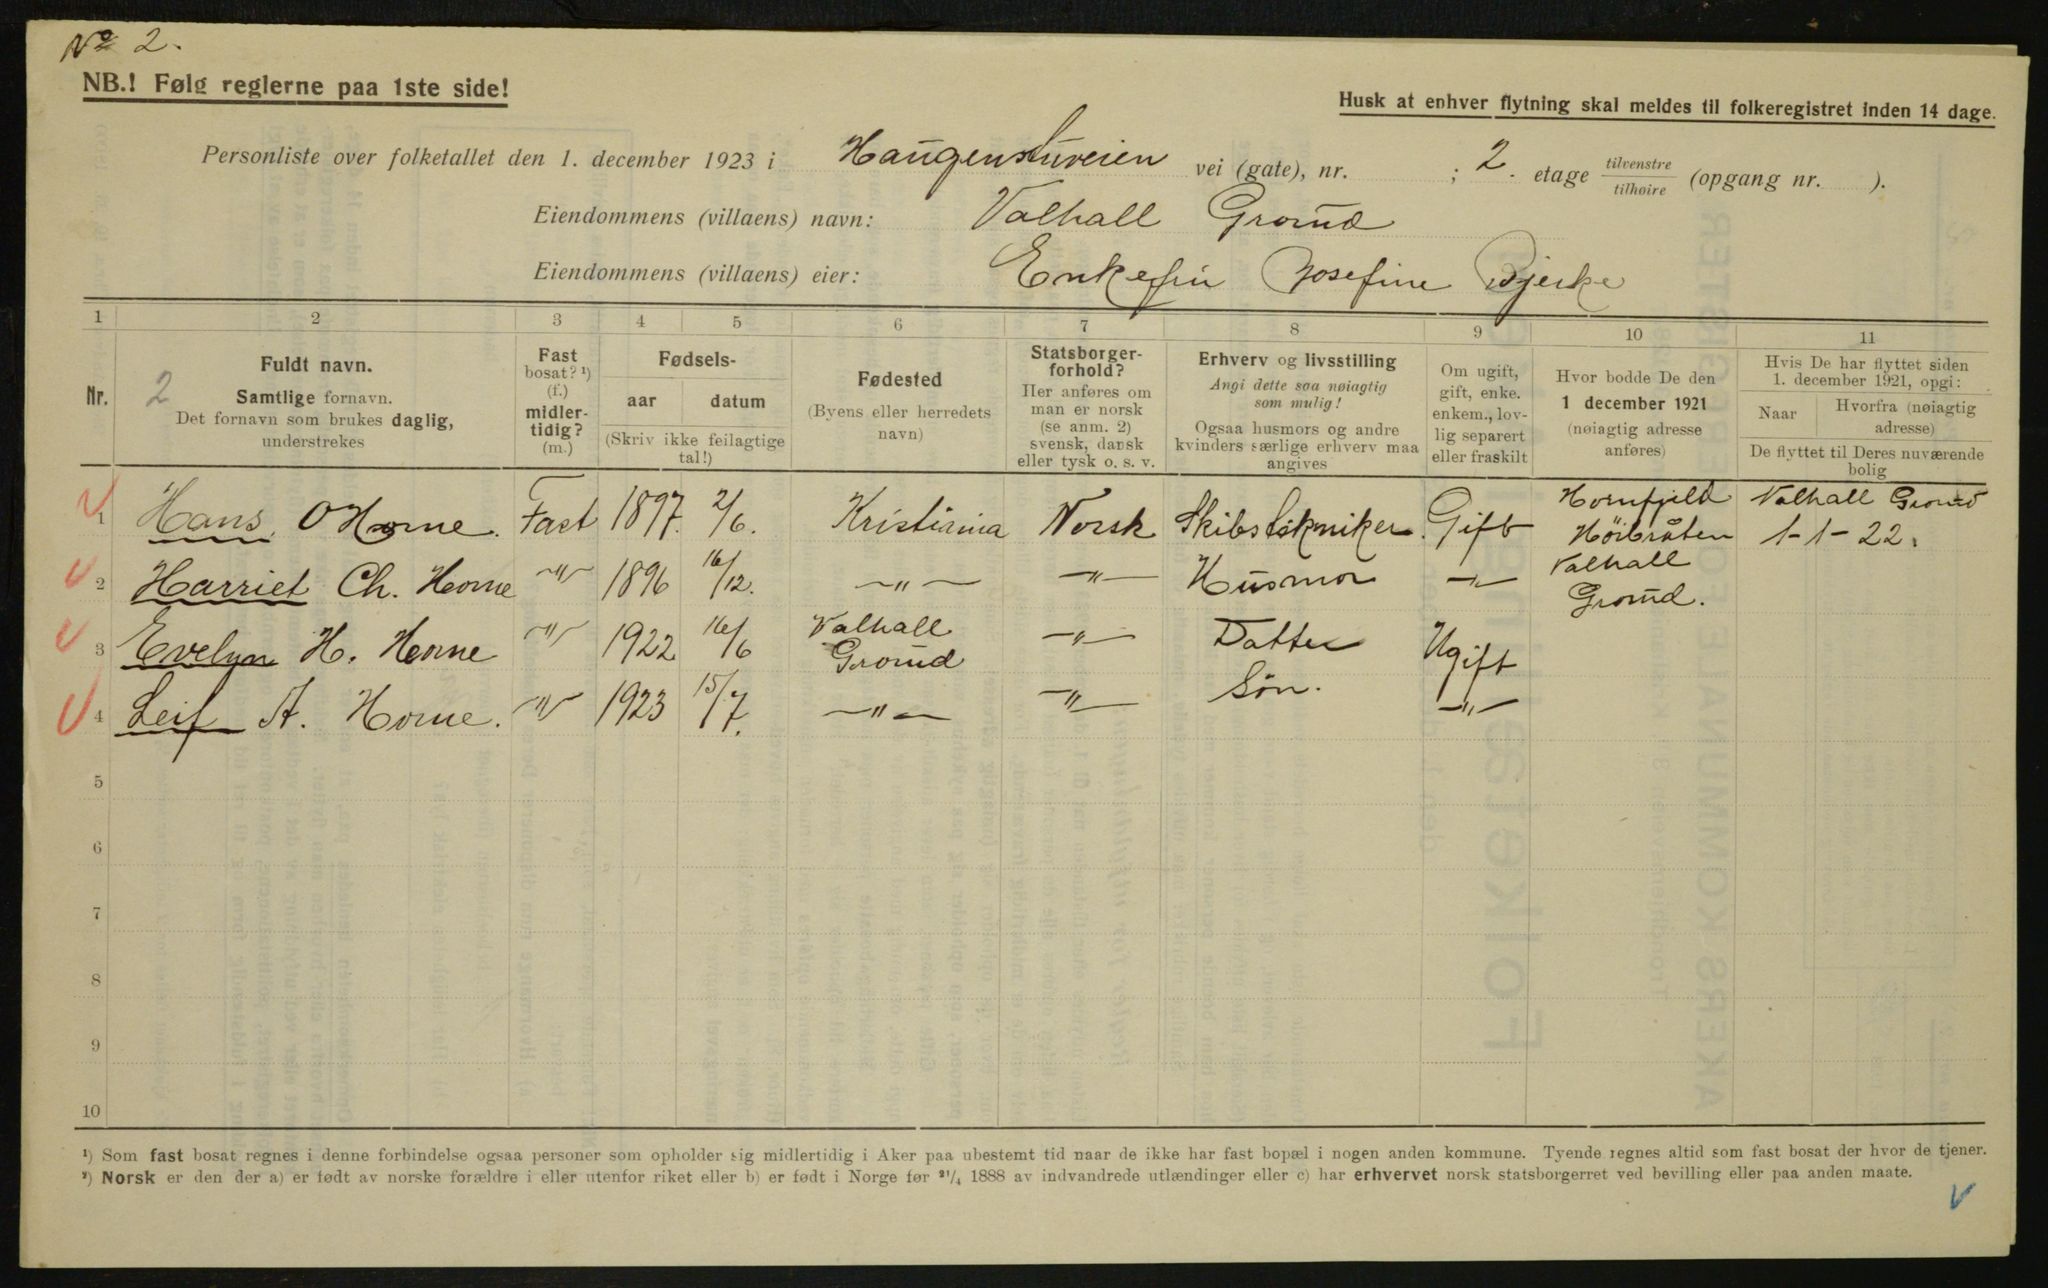 No 2.
NB.! Følg reglerne paa 1ste side!
Husk at enhver flytning skal meldes til folkeregistret inden 14 dage.
Personliste over folketallet den 1. december 1923 i Haugenstuveien vei (gate), nr. ; 2. etage tilvenstre/tilhøire (opgang nr. ).
Eiendommens (villaens) navn: Valhall Grorud
Eiendommens (villaens) eier: Enkefru Josefine Bjerke
1 2 3 4 5 6 7 8 9 10 11
Nr.
2
Fuldt navn.
Samtlige fornavn.
Det fornavn som brukes daglig,
understrekes
Fast
bosat? ¹)
(f.)
midler-
tidig?
(m.)
Fødsels-
aar datum
(Skriv ikke feilagtige
tal!)
Fødested
(Byens eller herredets
navn)
Statsborger-
forhold?
Her anføres om
man er norsk
(se anm. 2)
svensk, dansk
eller tysk o. s. v.
Erhverv og livsstilling
Angi dette saa nøiagtig
som mulig!
Ogsaa husmors og andre
kvinders særlige erhverv maa
angives
Om ugift,
gift, enke.
enkem., lov-
lig separert
eller fraskilt
Hvor bodde De den
1 december 1921
(nøiagtig adresse
anføres)
Hvis De har flyttet siden
1. december 1921, opgi:
Naar
Hvorfra (nøiagtig
adresse)
De flyttet til Deres nuværende
bolig
1 Hans O Horne. Fast 1897. 2/6. Kristiania Norsk Skibstekniker. Gift Hornfjeld Valhall Grorud
Hörbråten 1-1-22.
2 Harriet Ch. Horne -"- 1896 16/12. -"- -"- Husmor -"- Valhall
Grorud.
3 Evelyn H. Horne -"- 1922 16/6 Valhall
Grorud -"- Datter Ugift
4 Leif A. Horne. -"- 1923 15/7. -"- -"- Sön. -"-
5
6
7
8
9
10
¹) Som fast bosat regnes i denne forbindelse ogsaa personer som opholder sig midlertidig i Aker paa ubestemt tid naar de ikke har fast bopæl i nogen anden kommune. Tyende regnes altid som fast bosat der hvor de tjener.
²) Norsk er den der a) er født av norske forældre i eller utenfor riket eller b) er født i Norge før ²¹/₄ 1888 av indvandrede utlændinger eller c) har erhvervet norsk statsborgerret ved bevilling eller paa anden maate.